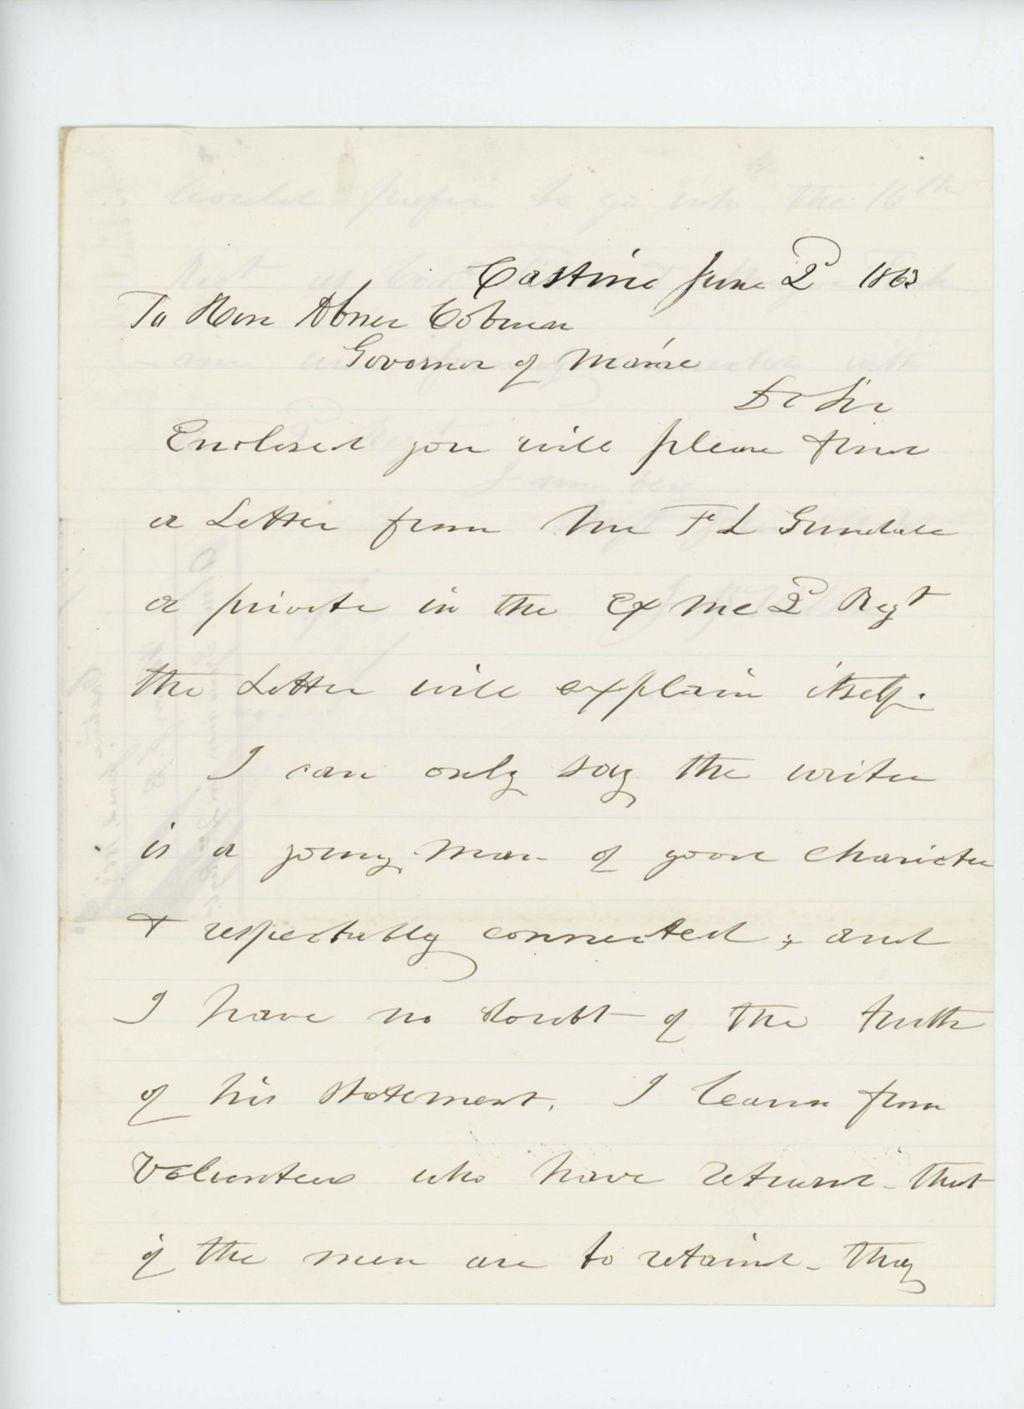 Castine June 2d 1863
To Hon Abner Coburn
Governor of Maine
Dr Sir
Enclosed you will please find
a Letter from Mr F L
a private in the Ex Me 2d Regt
the Letter will explain itself.
I can only say the writer
is a young man of good charicter
& respectably connected, and
I have no doubt of the truth
of his statement. I learn from
Volunteers who have returned that
if the men are to retained they